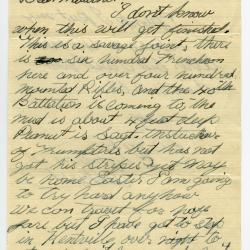 Dear Mother
I don't know
when this will get finished.
This is a savage joint, there
is six hundred Frenchmen
here and over four hundred
mounted Rifles, and the 40th
Battalion is coming to, the
mud is about 4 feet deep
is Sagt. instructor
of but has not
got his stripes yet may
be home Easter I am going
to try hard anyhow
we can travel for
fare but I have got to stop
in Kentville over night to